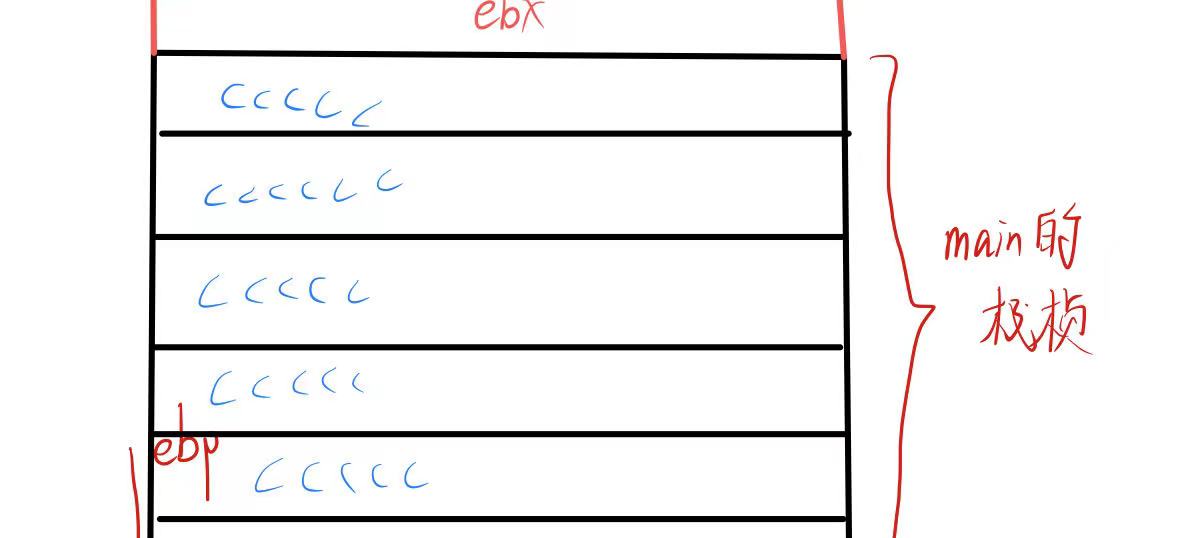 ebx
ccccc
cccccc
ccccc
ccccc
ebp
ccccc
main的
栈桢